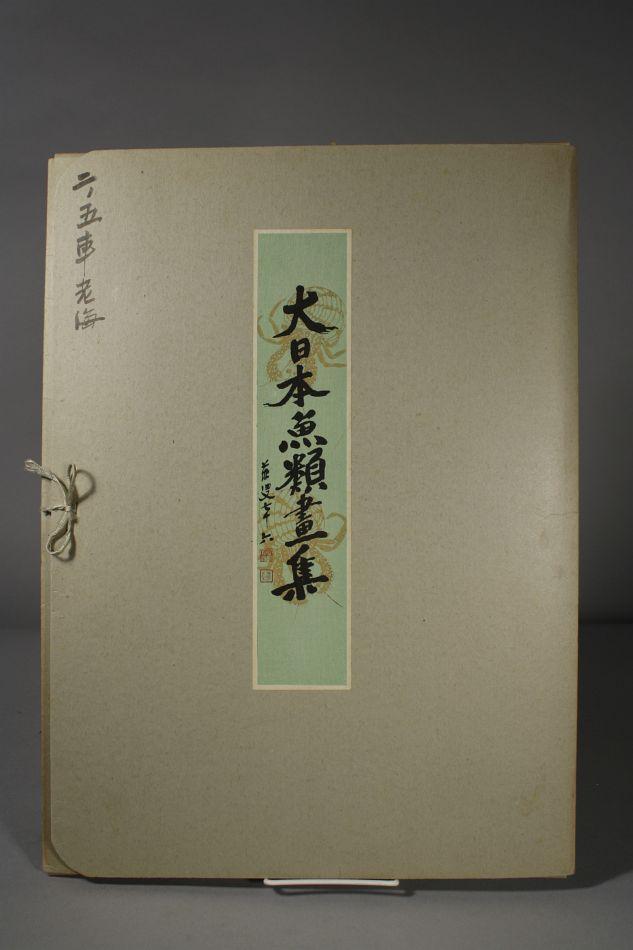 大日本魚類畫集
二ノ五車老海